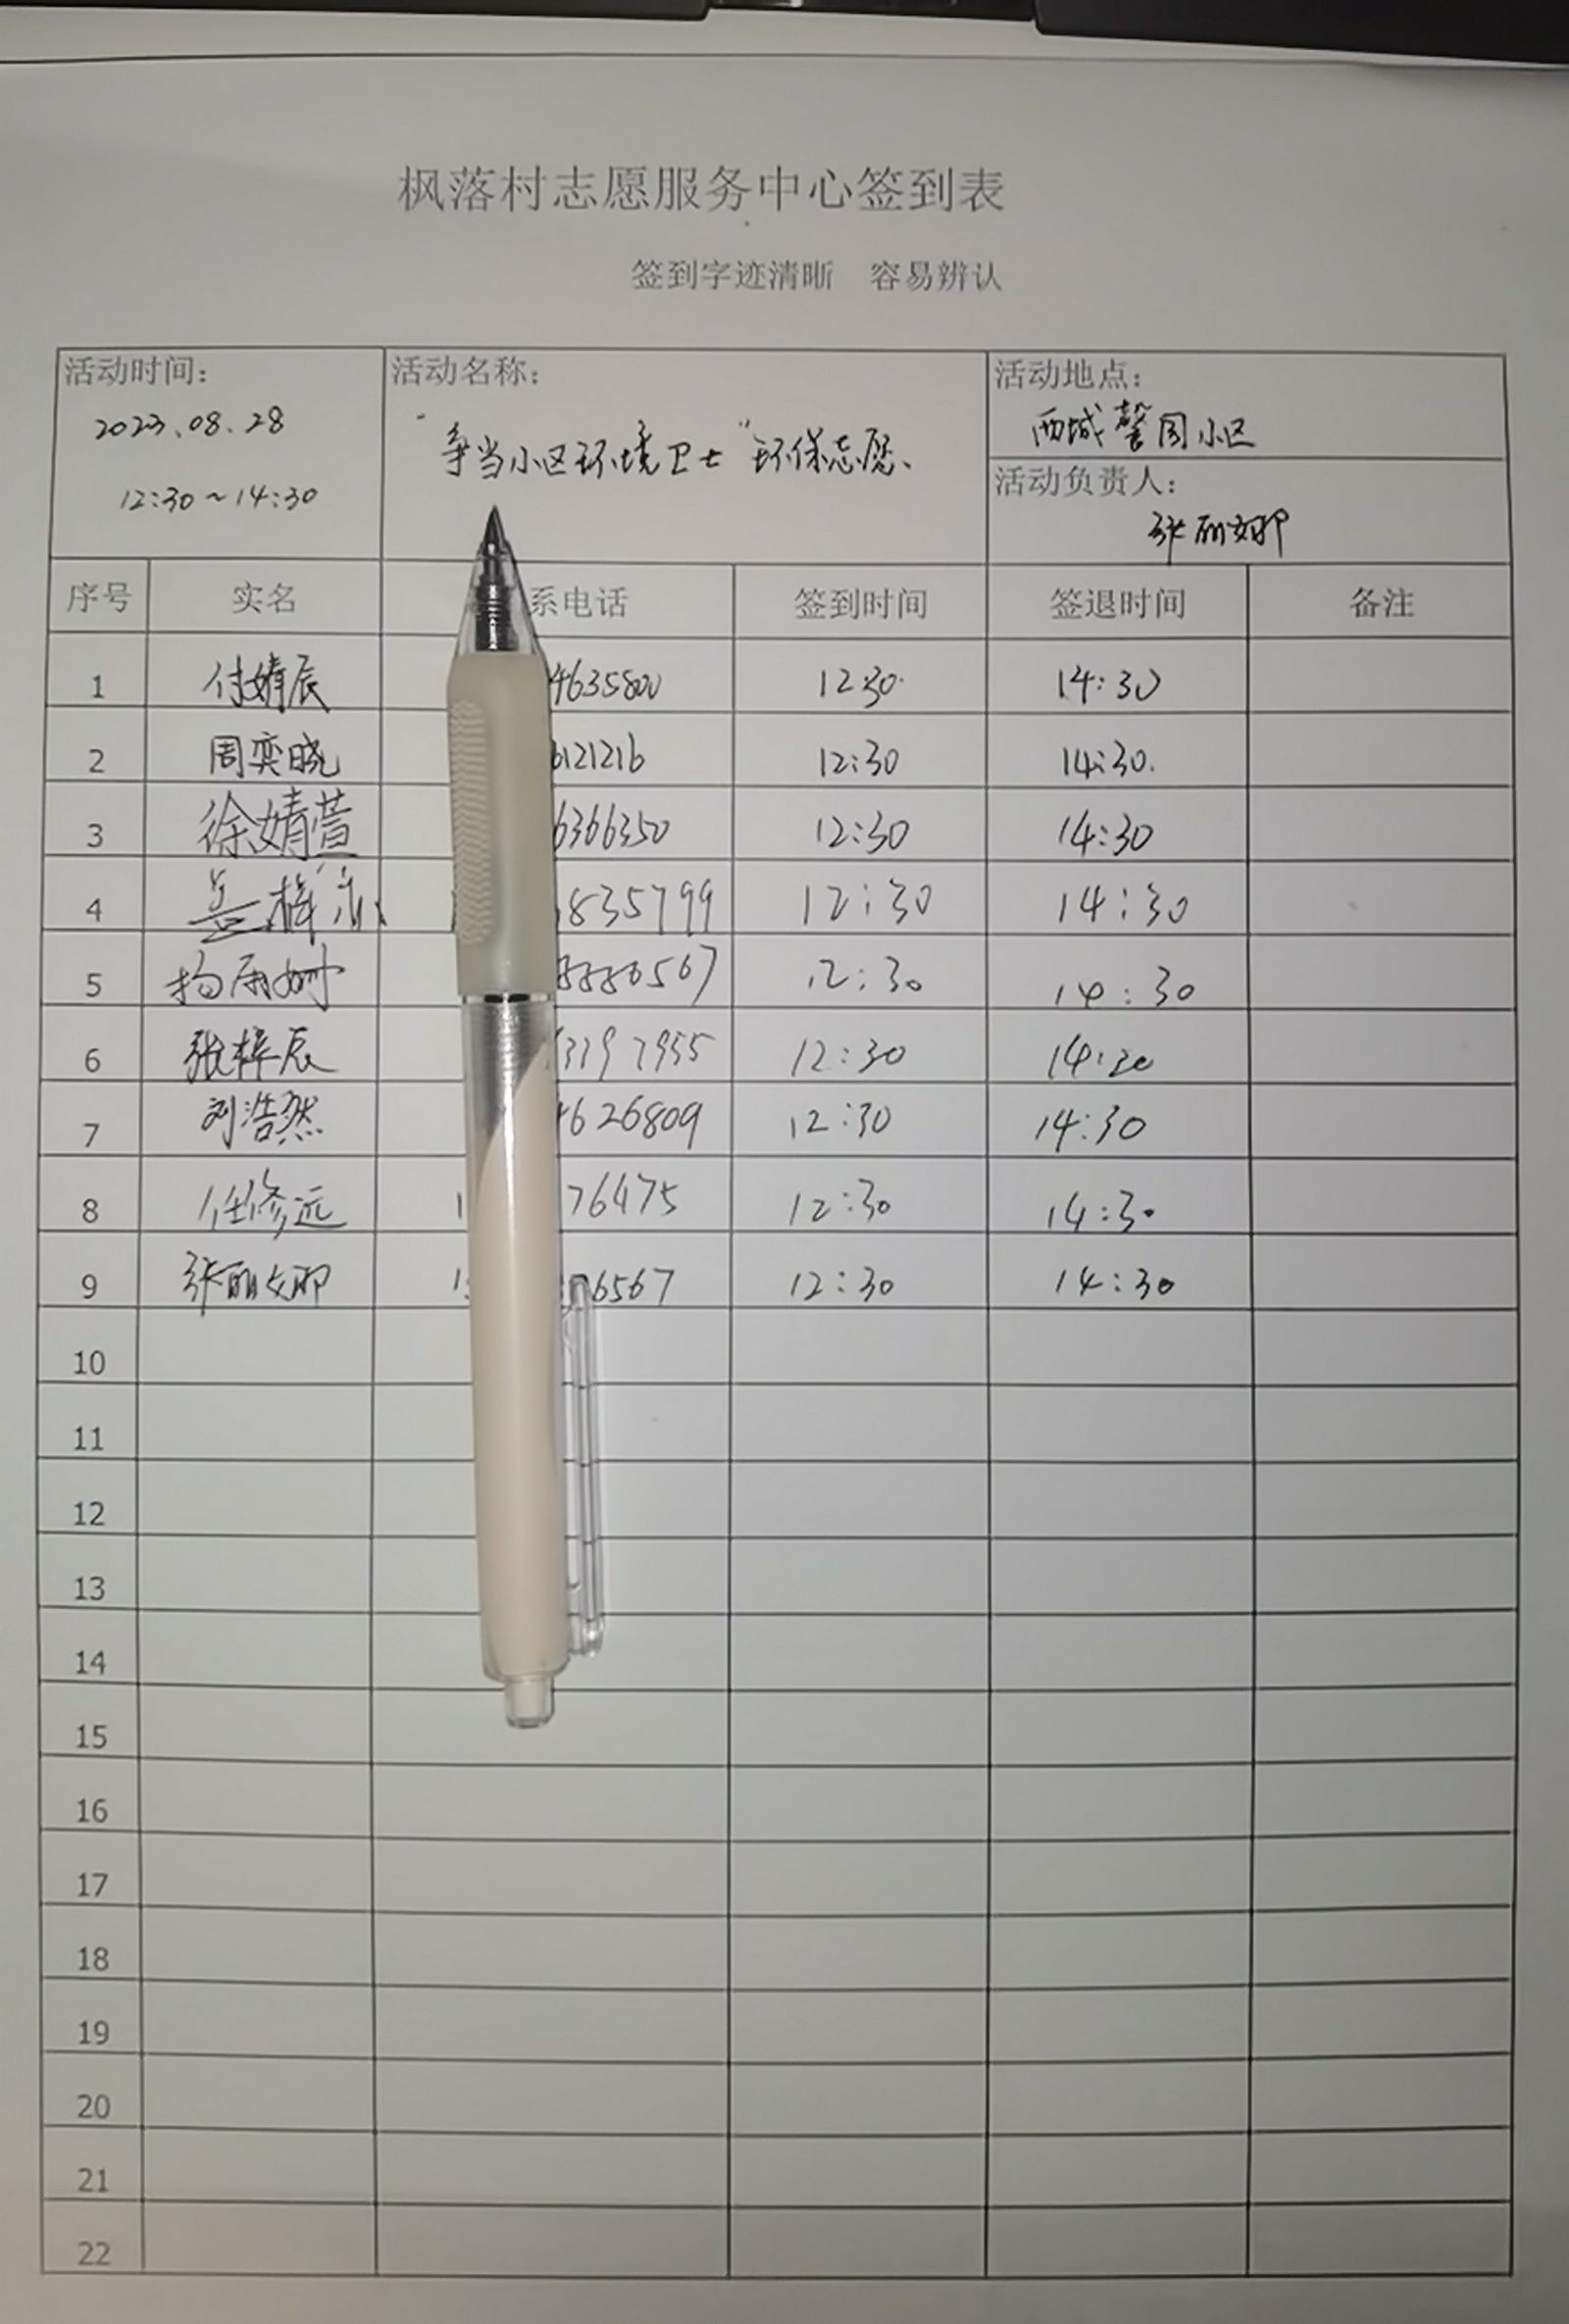 枫落村志愿服务中心签到表
签到字迹清晰 容易辨认
活动时间: 活动名称: 活动地点:
2023.08.28 "争当小区环境卫士"环保志愿、 西城馨园小区
12:30~14:30 活动负责人:
张丽娜
序号 实名 系电话 签到时间 签退时间 备注
1 付婧辰 4635800 12:30 14:30
2 周奕晓 6121216 12:30 14:30.
3 徐婧萱 6366350 12:30 14:30
4 835799 12:30 14:30
5 杨雨姗 8886567 12:30 14:30
6 张梓辰 3197955 12:30 14:30
7 刘浩然 4626809 12:30 14:30
8 任修远 1 76475 12:30 14:30
9 张丽娜 15 6567 12:30 14:30
10
11
12
13
14
15
16
17
18
19
20
21
22